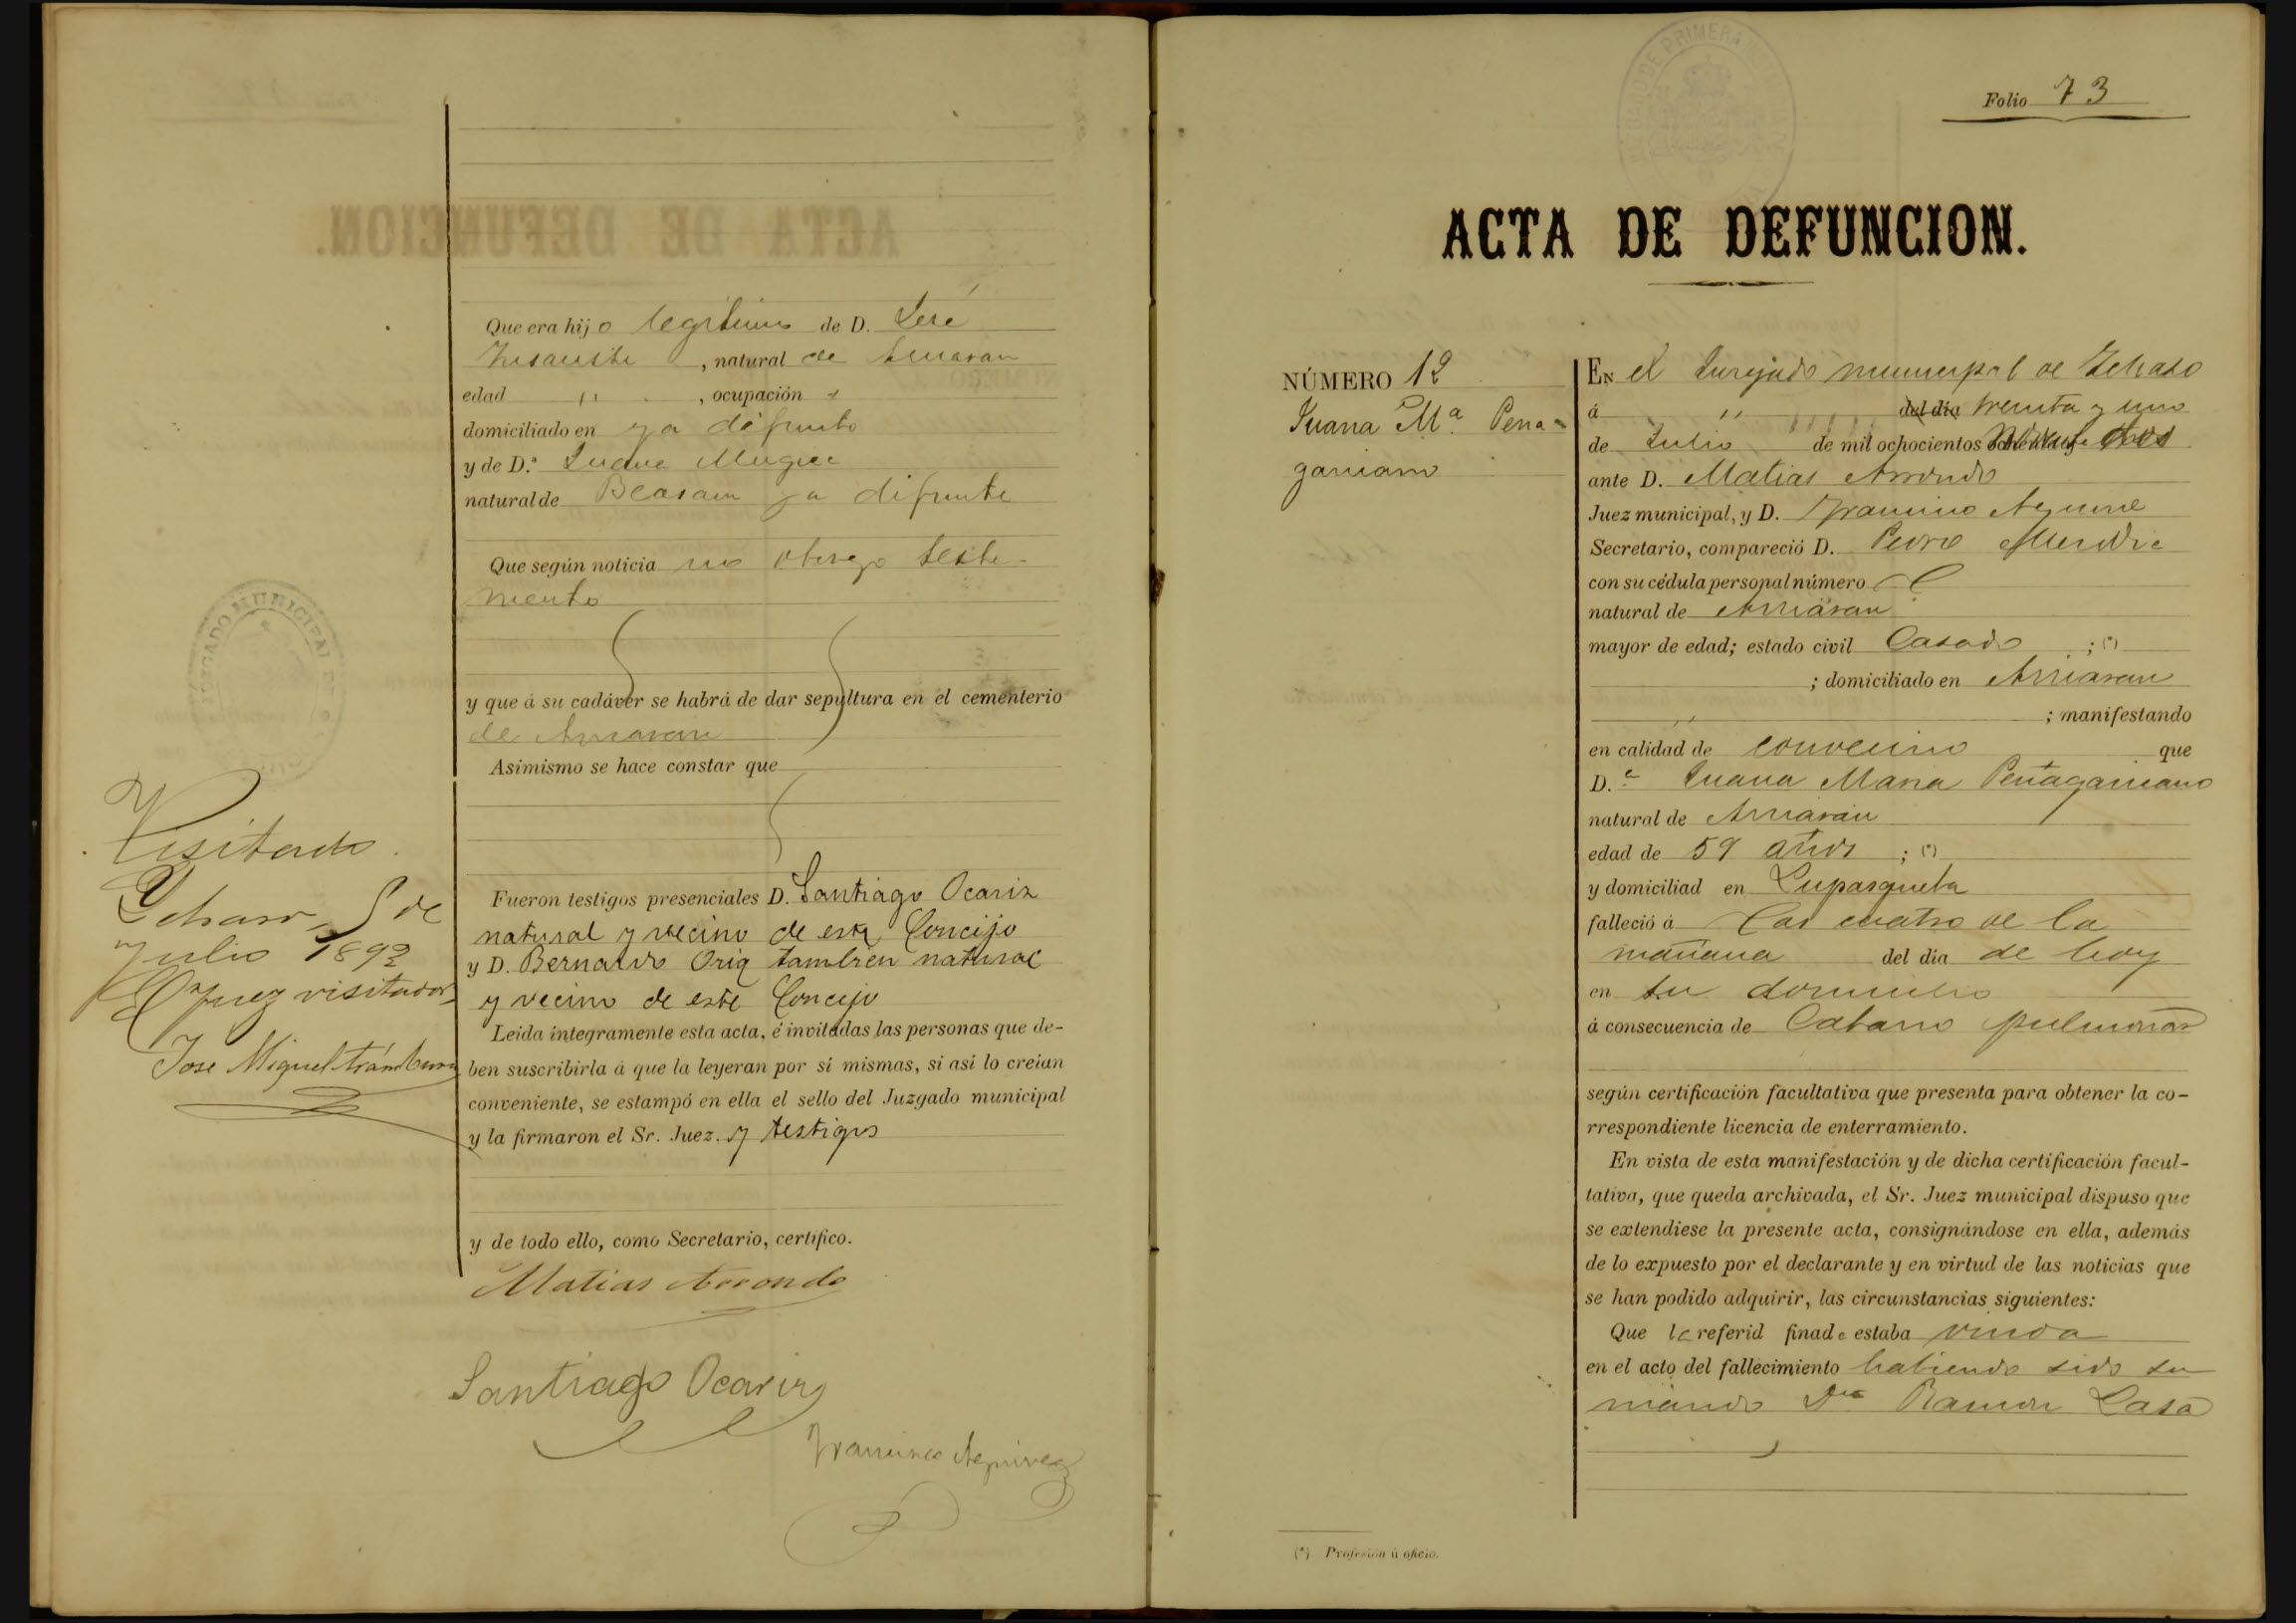 Que era hijo legitimo de D. José
, natural de Arruaran
edad " , ocupación "
domiciliado en ya difunto
y de D.ª Juana Mugica
natural de Beasain ya difunta
Que según noticia no otorgo testa-
mento
y que á su cadáver se habrá de dar sepultura en el cementerio
de Arruaran
Asimismo se hace constar que
Fueron testigos presenciales D. Santiago Ocariz
natural y vecino de este Concejo
y D. Bernardo Oria tambien natural
y vecino de este Concejo
Leída íntegramente esta acta, é invitadas las personas que de-
ben suscribirla á que la leyeran por sí mismas, si así lo creían
conveniente, se estampó en ella el sello del Juzgado municipal
y la firmaron el Sr. Juez. y testigos
y de todo ello, como Secretario, certifico.
Matias Arrondo
Santiago Ocariz
Francisco Aguirre
JUZGADO MUNICIPAL DE
Visitado
Ichaso, 5 de
Julio 1893
El Juez visitador
Jose Miguel
Folio 73
ACTA DE DEFUNCION.
NÚMERO 12
Juana Mª. Pena-
garicano
EN el Juzgado municipal de Ichaso
á " del dia treinta y uno
de Julio de mil ochocientos noventa y dos
ante D. Matias Arrondo
Juez municipal, y D. Francisco Aguirre
Secretario, compareció D. Pedro
con su cédula personal número
natural de Arruaran
mayor de edad; estado civil Casado ; (*)
; domiciliado en Arruaran
; manifestando
en calidad de convecino que
D.ª Juana Maria Peñagaricano
natural de Arruaran
edad de 59 años ; (*)
y domiciliad en Lupasqueta
falleció á las cuatro de la
mañana del dia de hoy
en su domicilio
á consecuencia de Catarro pulmonar
según certificación facultativa que presenta para obtener la co-
rrespondiente licencia de enterramiento.
En vista de esta manifestación y de dicha certificación facul-
tativa, que queda archivada, el Sr. Juez municipal dispuso que
se extendiese la presente acta, consignándose en ella, además
de lo expuesto por el declarante y en virtud de las noticias que
se han podido adquirir, las circunstancias siguientes:
Que la referid finada estaba viuda
en el acto del fallecimiento habiendo sido su
marido Dn Ramon Lasa
(*) Profesión ú oficio.